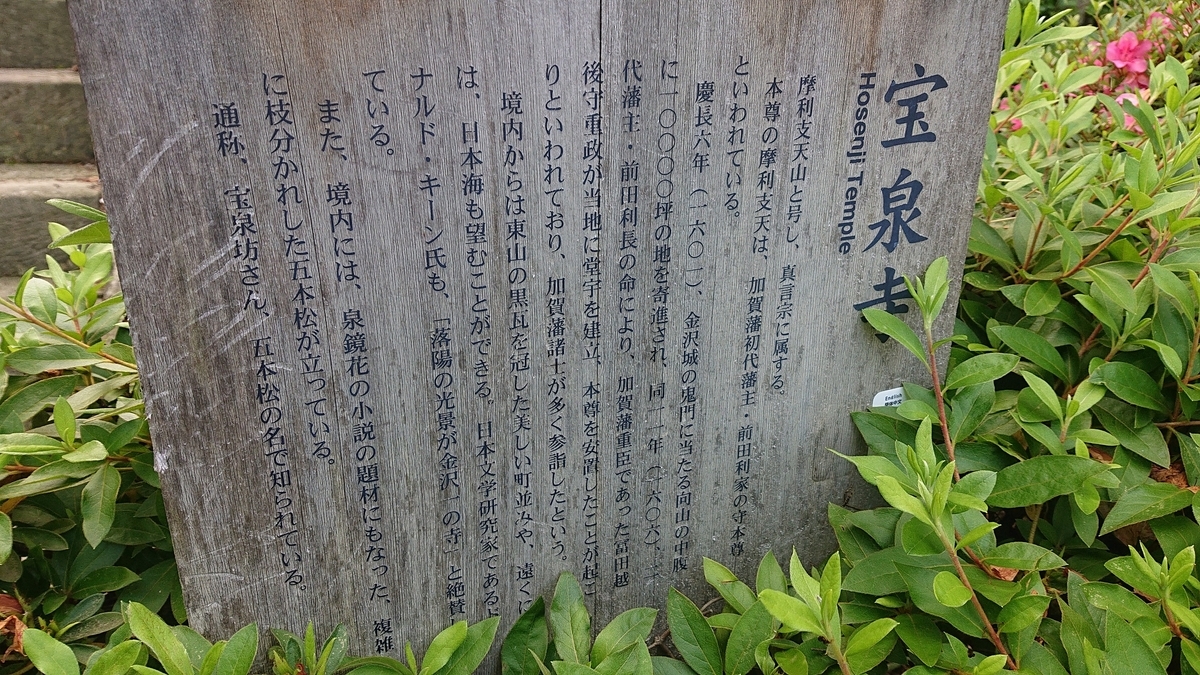 宝泉寺
Hosenji Temple
摩利支天山と号し、真言宗に属する。
本尊の摩利支天は、加賀藩初代藩主・前田利家の守本尊
といわれている。
慶長六年（一六〇一）、金沢城の鬼門に当たる向山の中腹
に一〇〇〇坪の地を寄進され、同一一年（一六〇六）、二
代藩主・前田利長の命により、加賀藩重臣であった富田越
後守重政が当地に堂宇を建立、本尊を安置したことが起こ
りといわれており、加賀藩諸士が多く参詣したという。
境内からは東山の黒瓦を冠した美しい町並みや、遠くに
は、日本海も望むことができる。日本文学研究家である
ナルド・キーン氏も、「落陽の光景が金沢一の寺」と絶賛
ている。
また、境内には、泉鏡花の小説の題材にもなった、複雑
に枝分かれした五本松が立っている。
通称、宝泉坊さん、五本松の名で知られている。
English